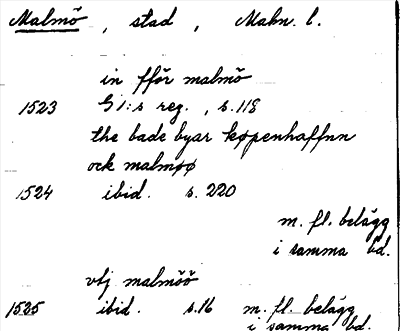 Malmö, stad, Malm. l.
in fför malmö
1523 G1:s reg., s. 118
the bade byar køpenhaffnn
ock malmøø
1524 ibid. s. 220
m. fl. belägg
i samma bd.
vtj malmöö
1525 ibid. s. 16 m. fl. belägg
i samma bd.